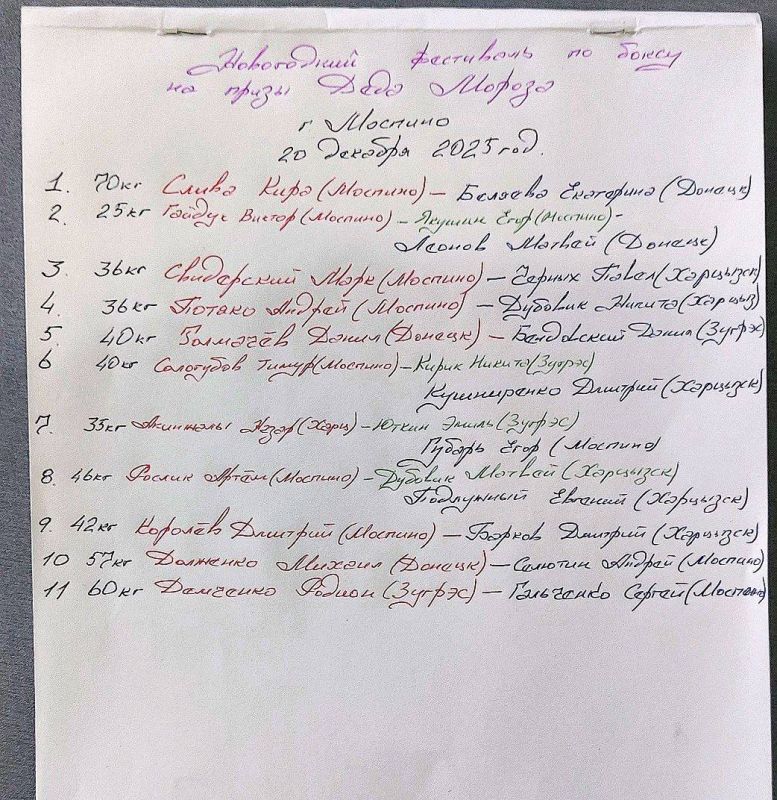 Новогодний фестиваль по боксу
на призы Деда Мороза
г Моспино
20 декабря 2025 год.
1. 70кг Слива Кира (Моспино) – Беляева Екатерина (Донецк)
2. 25кг Гайдук Виктор (Моспино) – Якушин Егор (Моспино) –
Леонов Матвей (Донецк)
3. 36кг Свидерский Марк (Моспино) – Черных Павел (Харцызск)
4. 36кг Потако Андрей (Моспино) – Дубовик Никита (Харцыз
5. 40кг Толмачёв Данил (Донецк) – Данил (Зугрэс)
6 40кг Сологубов Тимур (Моспино) – Кирик Никита (Зугрэс)
Кушниренко Дмитрий (Харцызск)
7. 35кг Назар (Харц) – Юткин Эмиль (Зугрэс)
Губарь Егор (Моспино)
8. 46кг Рослик Артём (Моспино) – Дубовик Матвей (Харцызск)
Подлужный Евгений (Харцызск)
9. 42кг Королёв Дмитрий (Моспино) – Барков Дмитрий (Харцызск)
10 57кг Долженко Михаил (Донецк) – Салютин Андрей (Моспино)
11 60кг Демченко Родион (Зугрэс) – Гальченко Сергей (Моспино)